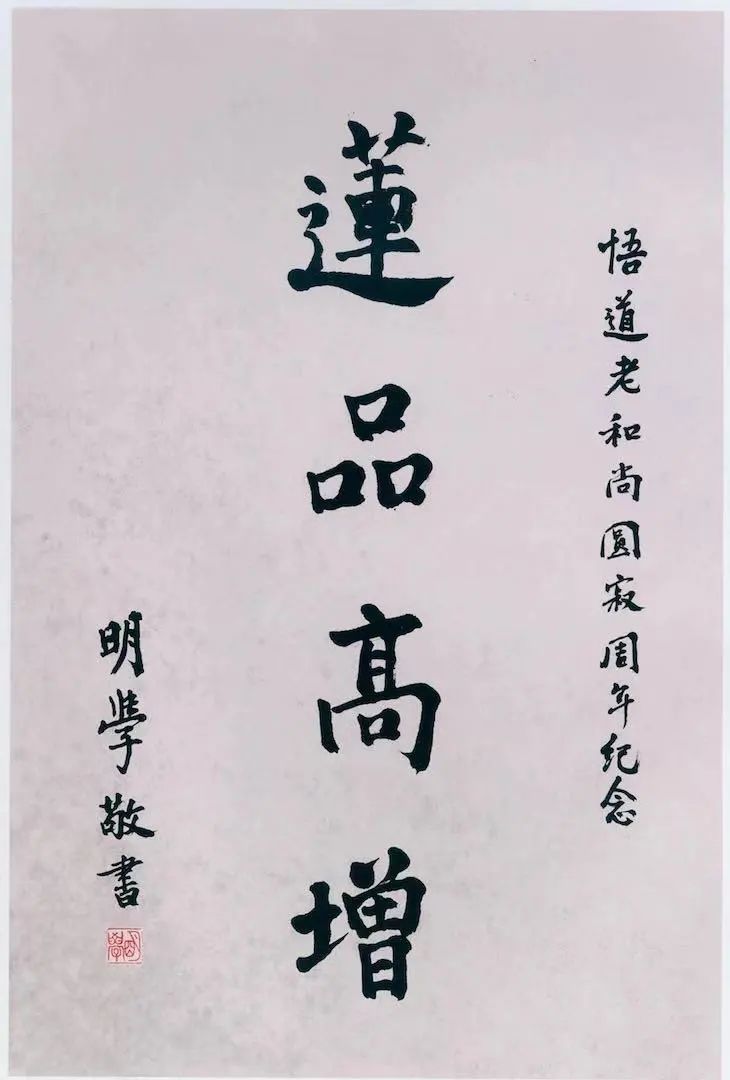 悟道老和尚圓寂周年纪念
蓮品高增
明學敬書
明學